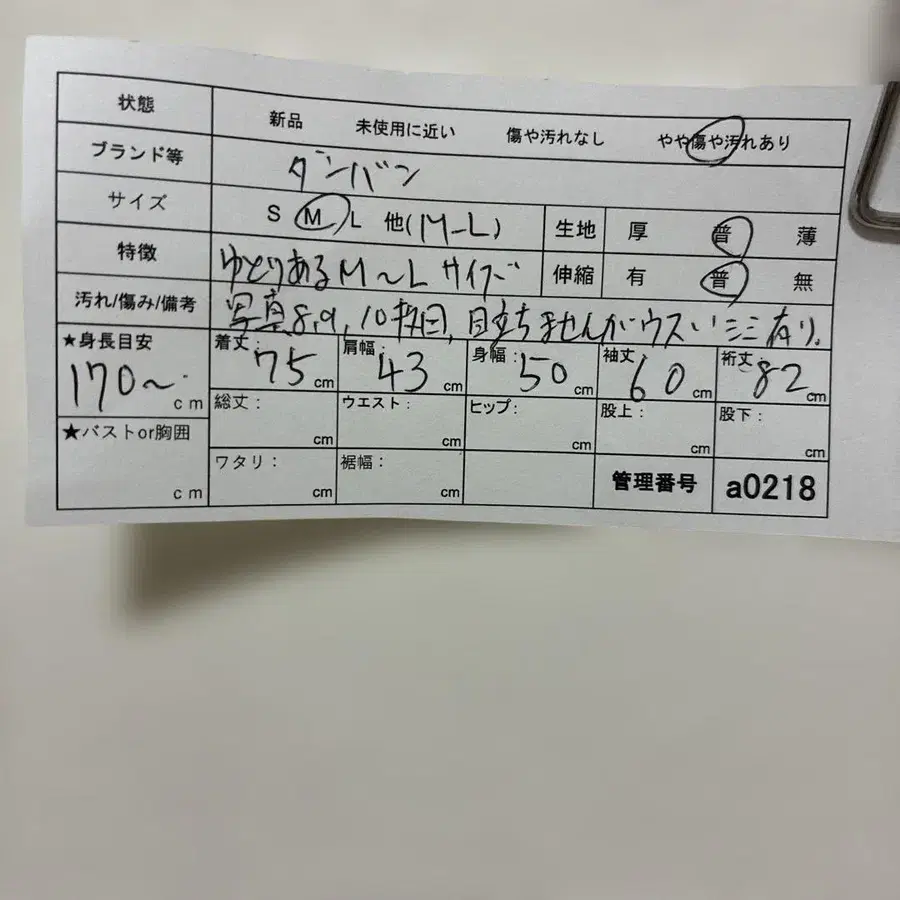 状態 新品 未使用に近い 傷や汚れなし やや傷や汚れあり
ブランド等 ダンバン
サイズ S M L 他(M-L) 生地 厚 普 薄
特徴 ゆとりあるM〜Lサイズ 伸縮 有 普 無
汚れ/傷み/備考 写真8,9,10枚目,目立ちませんがウスいシミ有り。
★身長目安 170〜 cm 着丈: 75 cm 肩幅: 43 cm 身幅: 50 cm 袖丈: 60 cm 裄丈: 82 cm
★バストor胸囲 cm 総丈: cm ウエスト: cm ヒップ: cm 股上: cm 股下: cm
ワタリ: cm 裾幅: cm 管理番号 a0218